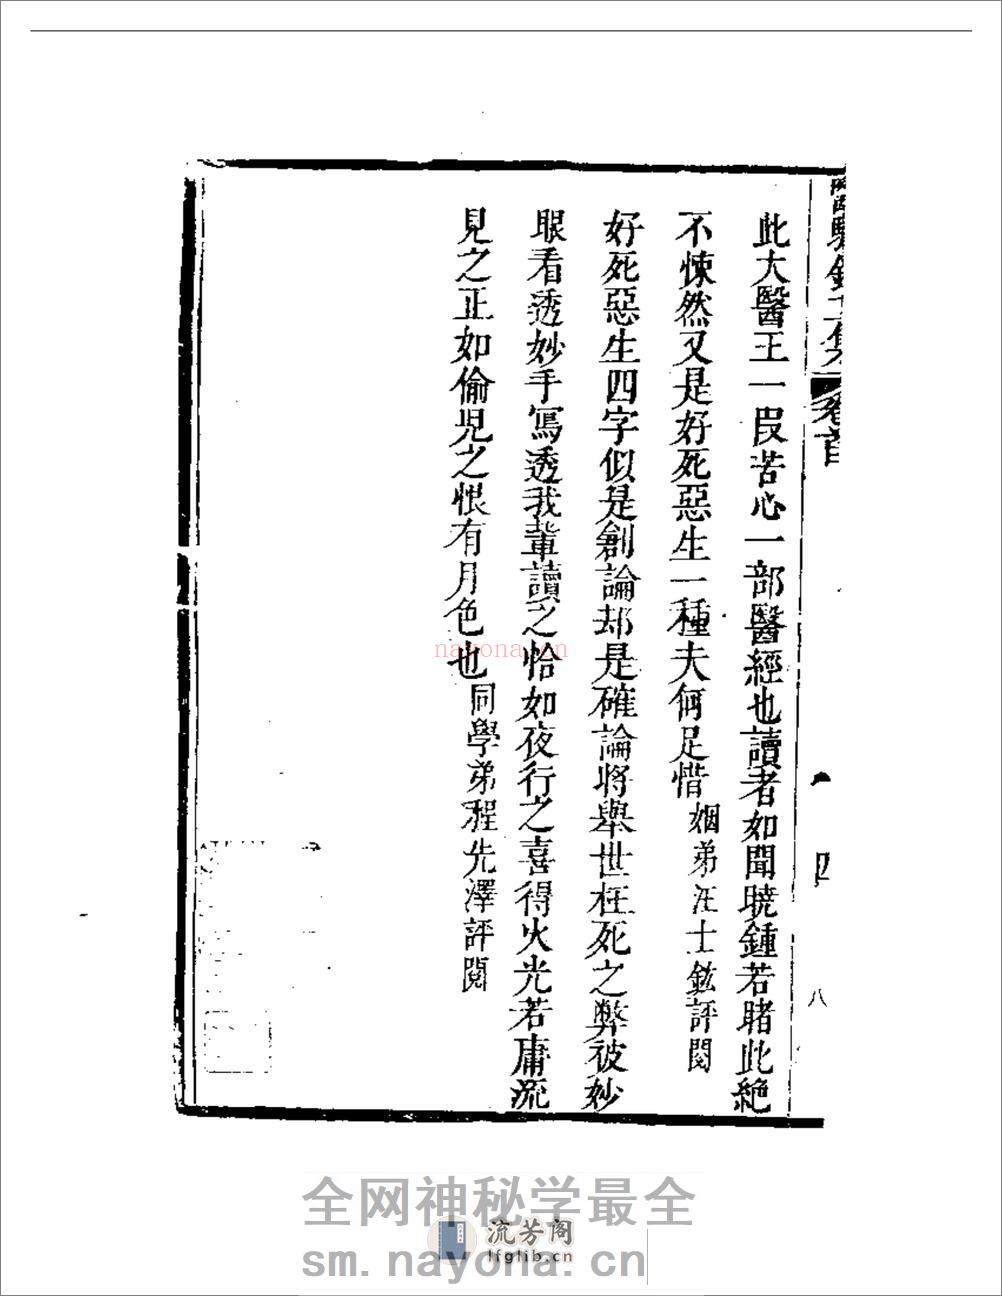 此大醫王一段苦心一部醫經也讀者如聞曉鍾若睹此絶
不悚然又是好死惡生一種夫何足惜 姻弟汪士鋐評閱
好死惡生四字似是創論却是確論將舉世枉死之弊被妙
眼看透妙手寫透我輩讀之恰如夜行之喜得火光若庸流
見之正如偷兒之恨有月色也 同學弟程先澤評閱
卷首
四
八
nayona.cn
全网神秘学最全
流芳阁
lfglib.cn
sm.nayona.cn